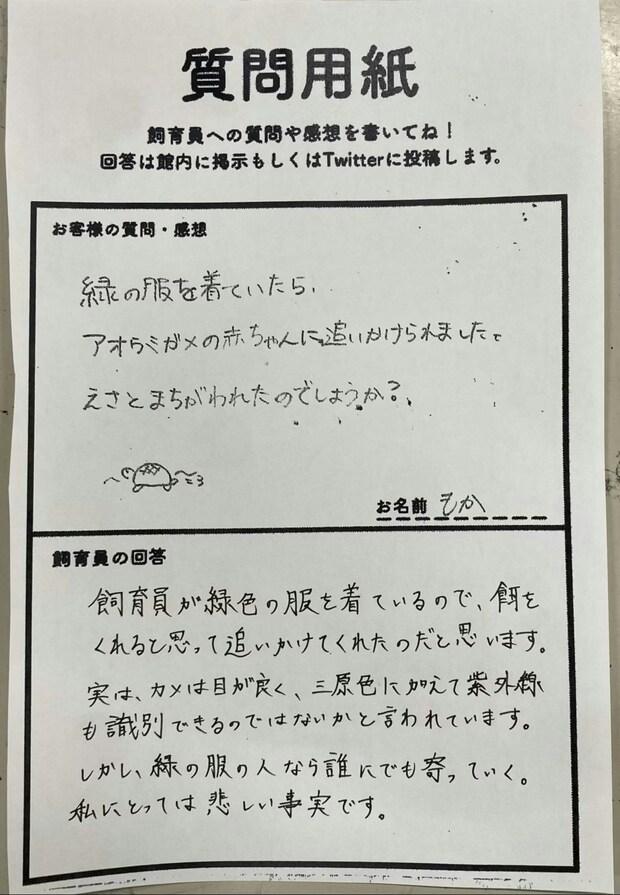 質問用紙
飼育員への質問や感想を書いてね！
回答は館内に掲示もしくはTwitterに投稿します。
お客様の質問・感想
緑の服を着ていたら、
アオウミガメの赤ちゃんに追いかけられました。
えさとまちがわれたのでしょうか？
お名前 もか
飼育員の回答
飼育員が緑色の服を着ているので、餌を
くれると思って追いかけてくれたのだと思います。
実は、カメは目が良く、三原色に加えて紫外線
も識別できるのではないかと言われています。
しかし、緑の服の人なら誰にでも寄っていく。
私にとっては悲しい事実です。